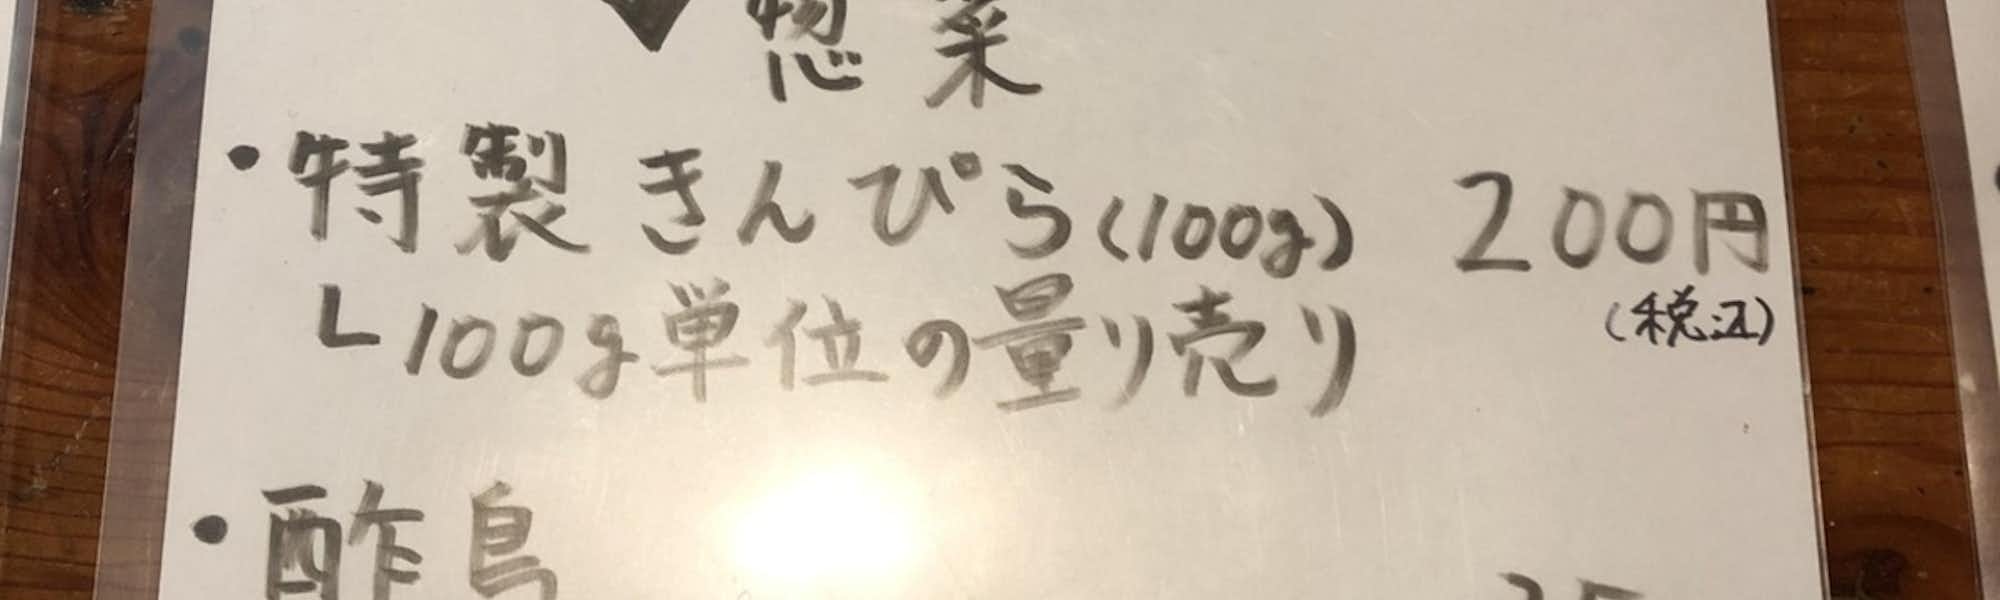 惣菜
・特製きんぴら(100g) 200円
(税込)
└100g単位の量り売り
・酢鳥